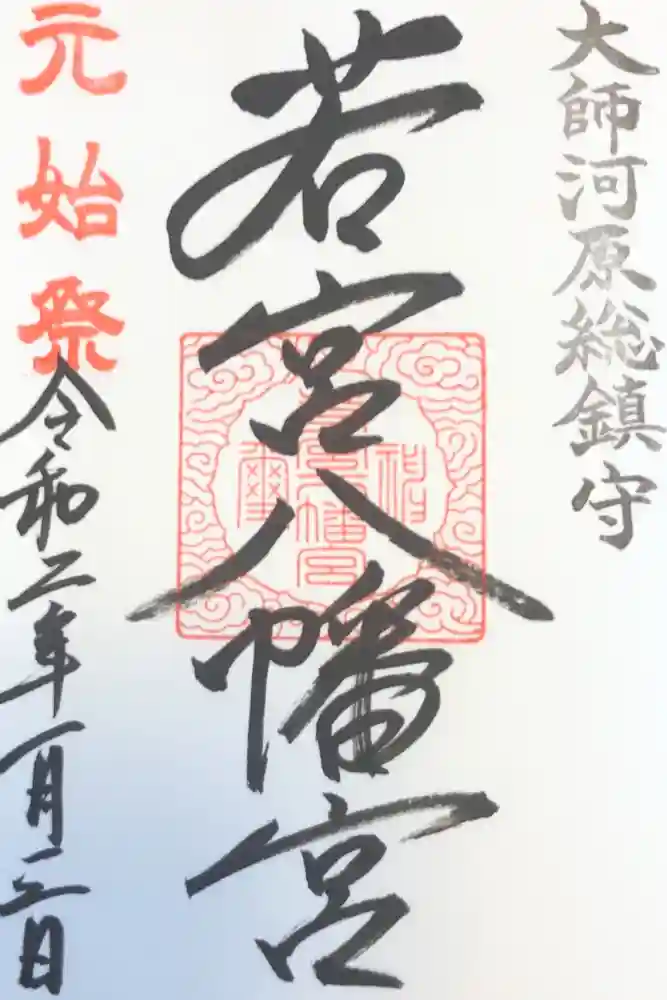 大師河原総鎮守
若宮八幡宮
元始祭
令和二年一月三日